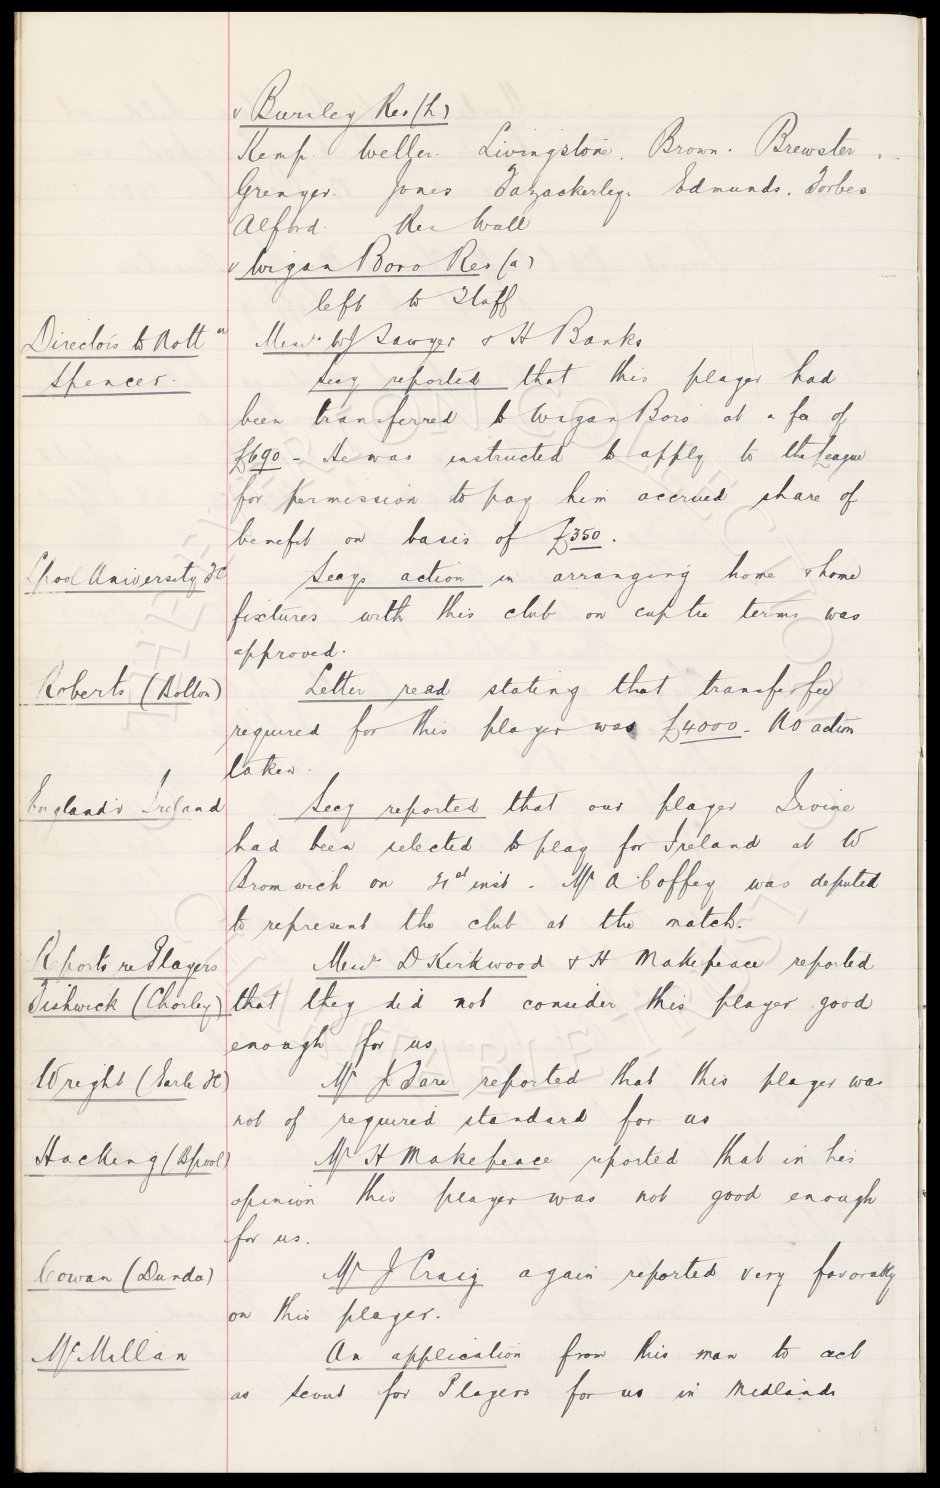 v Burnley Res (h)
Kemp. Weller. Livingstone. Brown. Brewster.
Grenyer. Jones Fazackerley. Edmunds. Forbes
Alford. Res Wall
v Wigan Boro Res (a)
left to Staff
Directors to Nott m Messrs W J Sawyer & H Banks
Spencer. Secy reported that this player had
been transferred to Wigan Boro at a fee of
£690 - He was instructed to apply to the League
for permission to pay him accrued share of
benefit on basis of £350.
Lpool University FC Secys action in arranging home & home
fixtures with this club on cup tie terms was
approved.
Roberts (Bolton) Letter read stating that transfer fee
required for this player was £4000. No action
taken.
England v Ireland Secy reported that our player Irvine
had been selected to play for Ireland at W
Bromwich on 21st inst. Mr A Coffey was deputed
to represent the club at the match.
Reports re Players Messrs D Kirkwood & H Makepeace reported
Fishwick (Chorley) that they did not consider this player good
enough for us
Wright (Earle FC) Mr J Fare reported that this player was
not of required standard for us
Hacking (Bpool) Mr H Makepeace reported that in his
opinion this player was not good enough
for us.
Cowan (Dundee) Mr J Craig again reported very favorably
on this player.
McMillan An application from this man to act
as scout for Players for us in Midlands
THE EVERTON COLLECTION
CHARITABLE TRUST